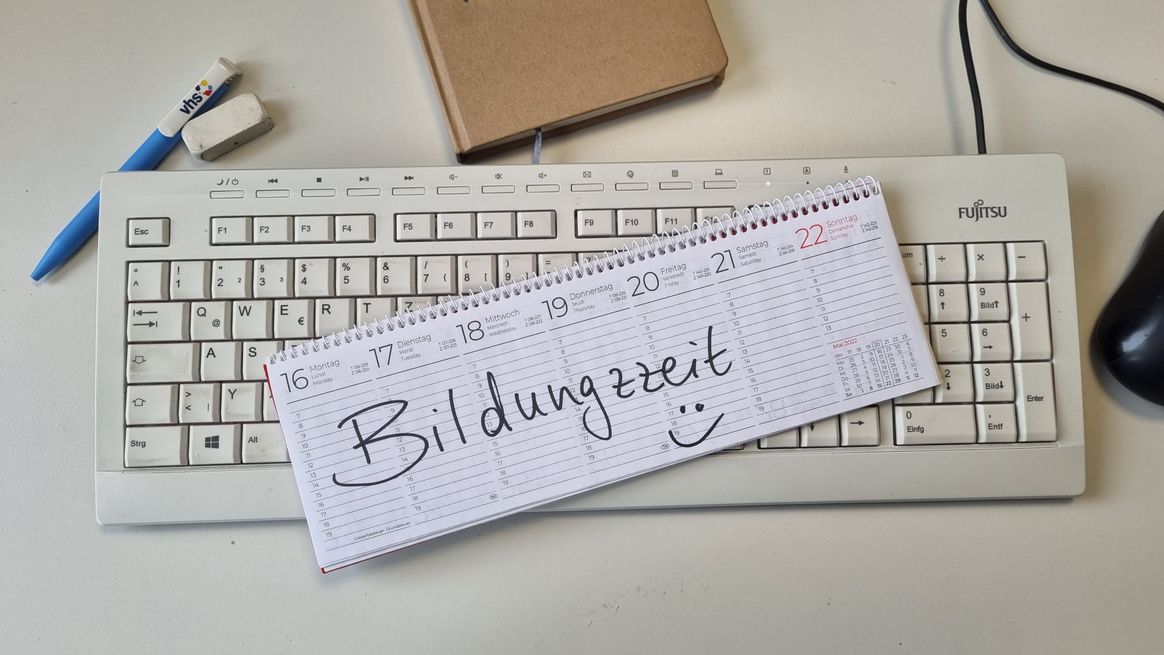 vhs
FUJITSU
Esc F1 F2 F3 F4 F5 F6 F7 F8 F9 F10 F11
Q @ W E € R T
A S
Y
Strg Alt
+ × −
8 9 Bild
5 6
3 Bild
Enter
0 Einfg , Entf
16 Montag Lundi Monday
17 Dienstag Mardi Tuesday
18 Mittwoch Mercredi Wednesday
19 Donnerstag Jeudi Thursday
20 Freitag Vendredi Friday
21 Samstag Samedi Saturday
22 Sonntag Dimanche Sunday
Bildungzzeit
Mai 2022